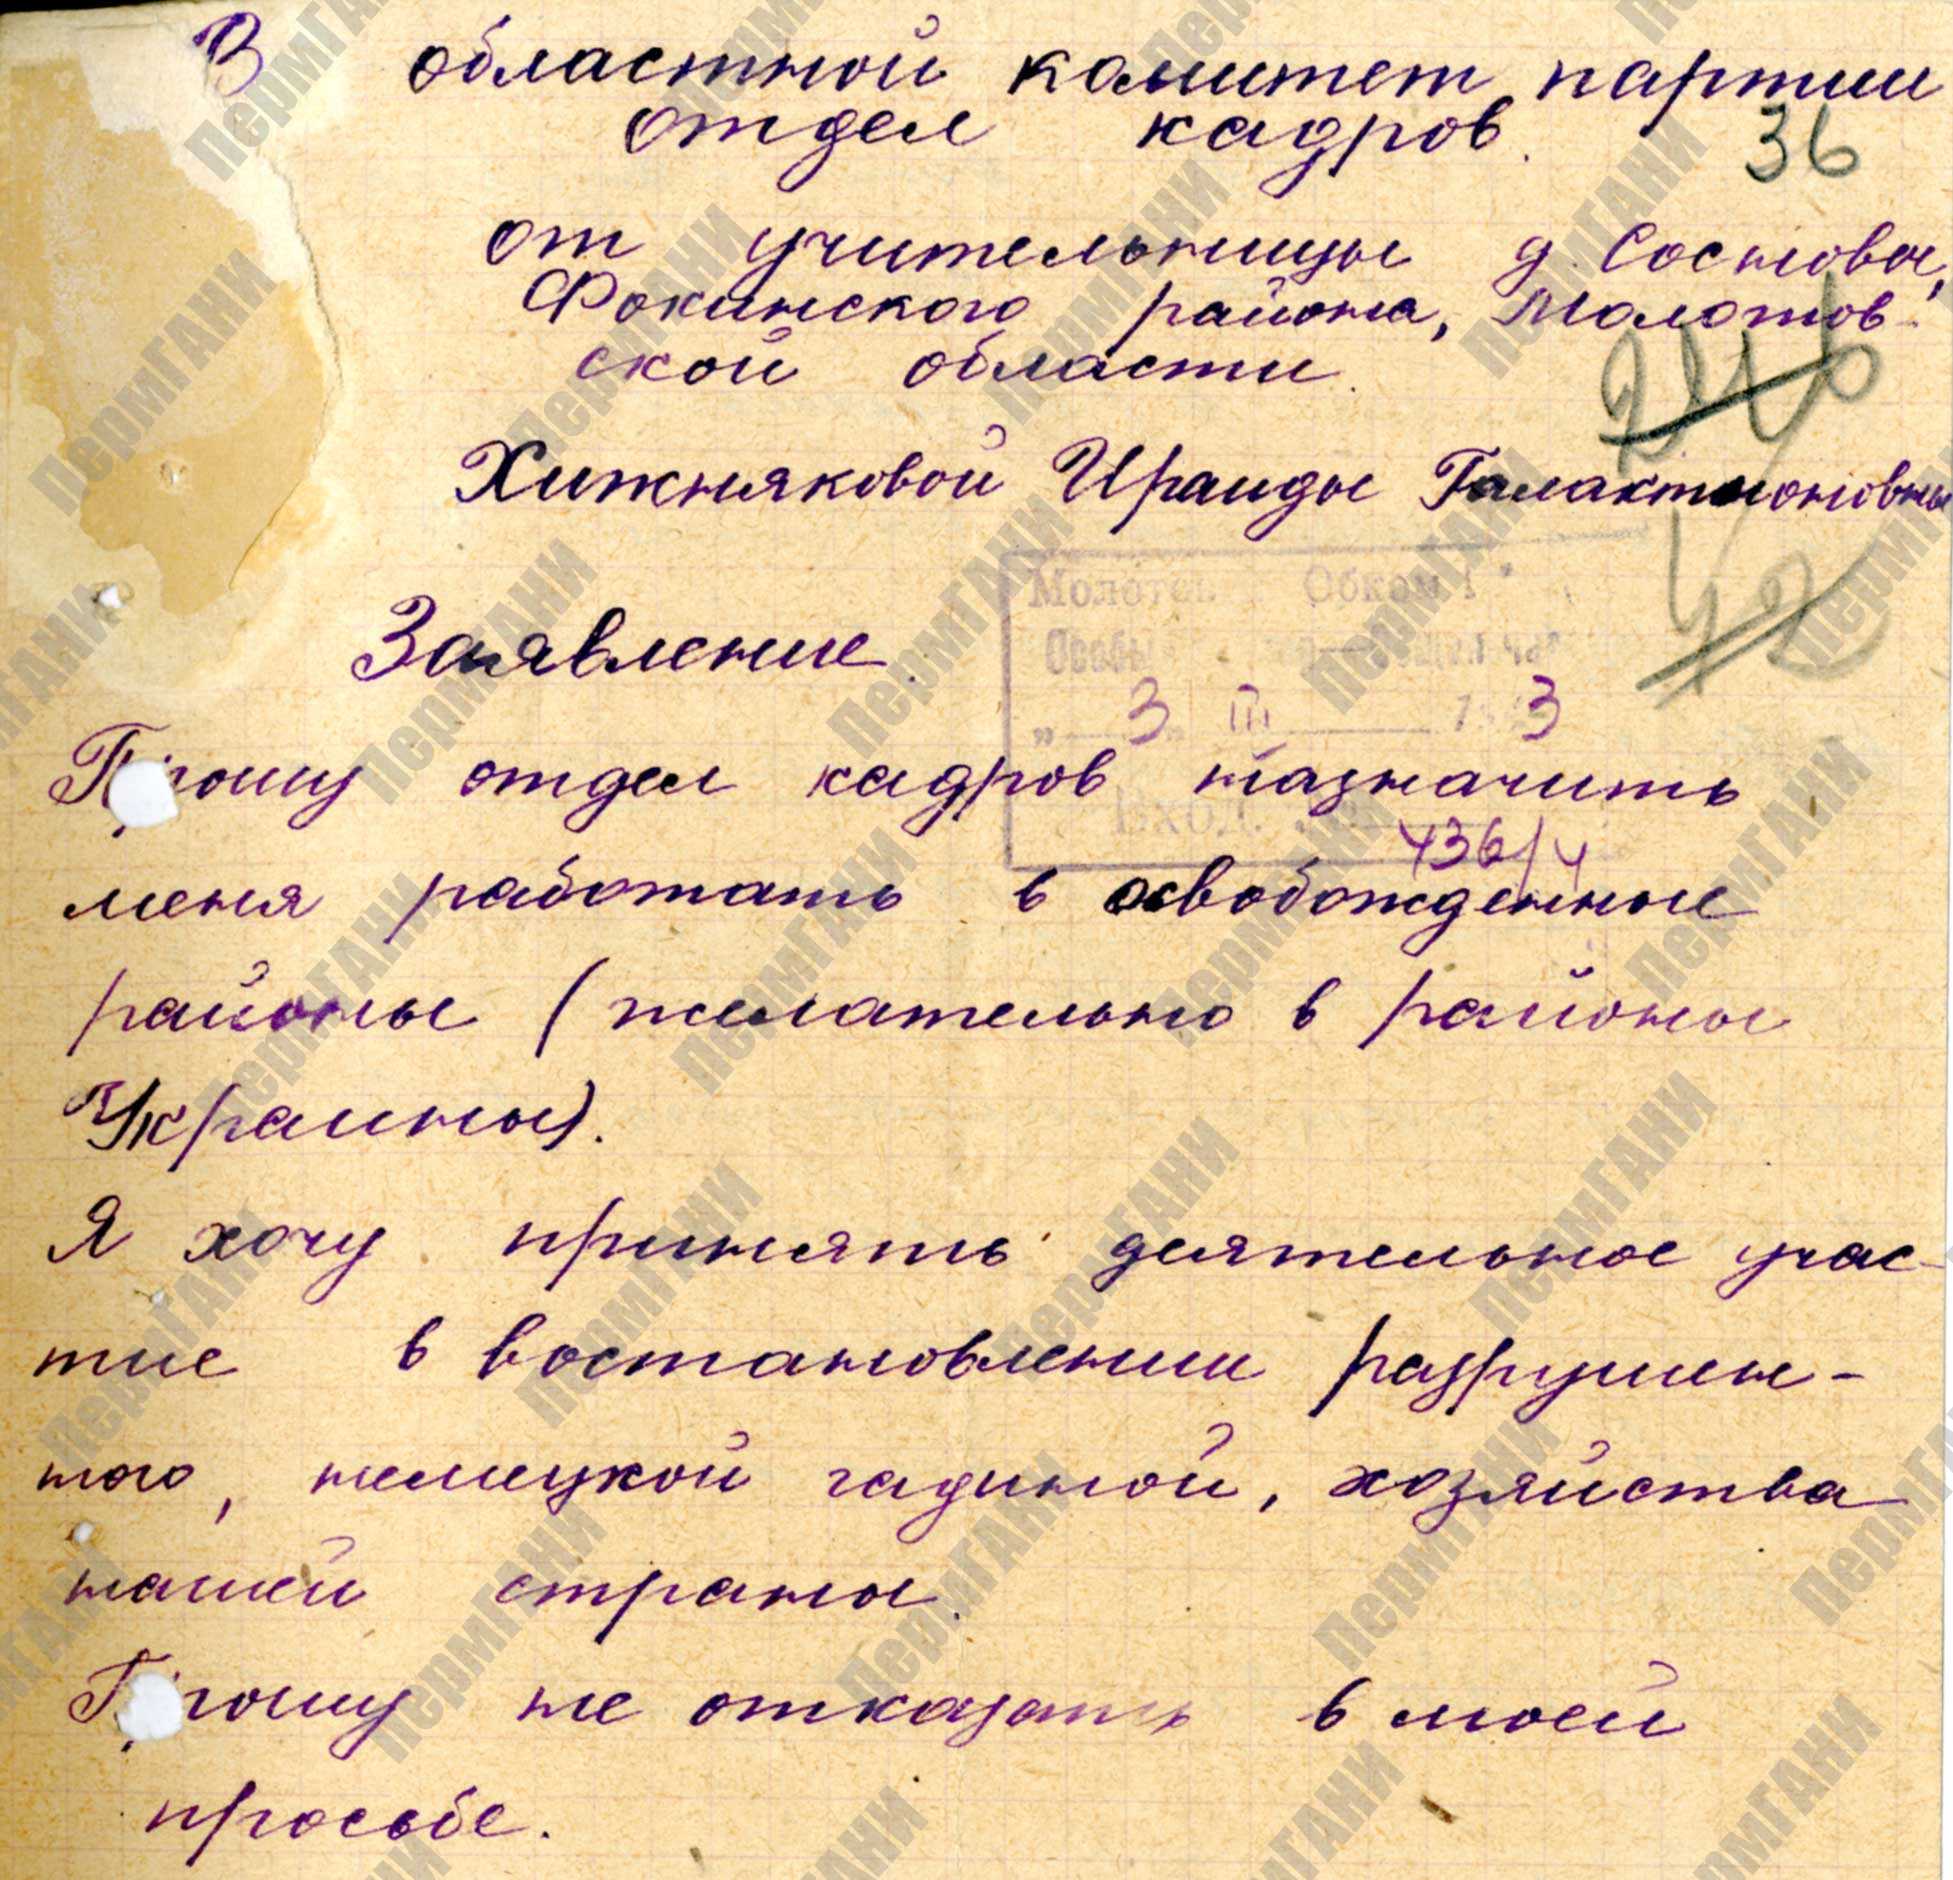 В областной комитет партии
отдел кадров.
36
от учительницы д. Сосновое,
Фокинского района, Молотов-
ской области.
Хижняковой Ираиды Галактионовны
Молотов Обком
42
Заявление.
„ 3 " III 3
Прошу отдел кадров назначить
Вход.
436/4
меня работать в освобожденные
районы (желательно в районы
Украины).
Я хочу принять деятельное учас-
тие в востановлении разрушен-
ного, немецкой гадиной, хозяйства
нашей страны.
Прошу не отказать в моей
просьбе.
ПермГАНИ